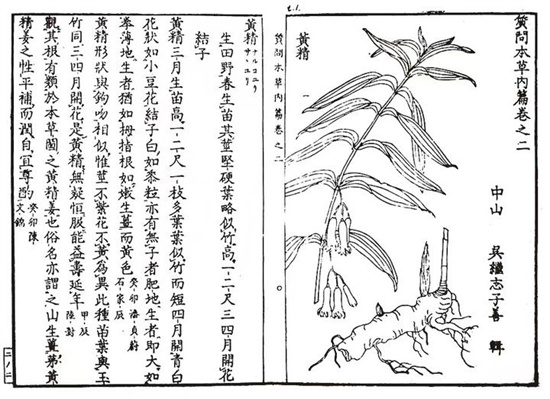 質問本草內篇卷之二
中山 吳繼志子善 輯
黃精
質問本草內篇卷之二
黃精 ナルコユリ サヽユリ
生田野春生苗其莖堅硬葉略似竹高一二尺三四月開花
結子
黃精三月生苗高一二尺一枝多葉葉似竹而短四月開青白
花狀如小豆花結子白如黍粒亦有無子者肥地生者即大如
拳薄地生者猶如拇指根如嫩生薑而黃色 癸卯潘貞蔚 石家辰
黃精形狀與鉤吻相似惟莖不紫花不黃為異此種苗葉與玉
竹同三四月開花是黃精無疑恒服能益壽延年 甲辰 陸澍
觀其根有類於本草圖之黃精姜也俗名亦謂之山生薑第黃
精姜之性平補而潤自宜尊酌 癸卯陳文錦